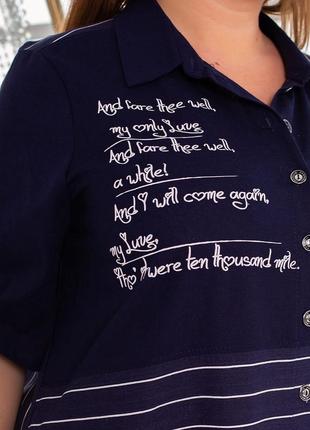 And fare thee well,
my only Luve
And fare thee well,
a while!
And I will come again,
my Luve,
Tho' were ten thousand mile.